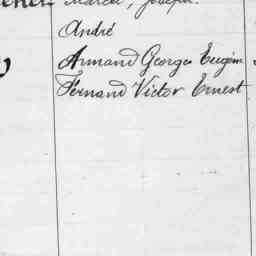 Marcel, Joseph.
André
Armand Georges Eugèn
Fernand Victor Ernest